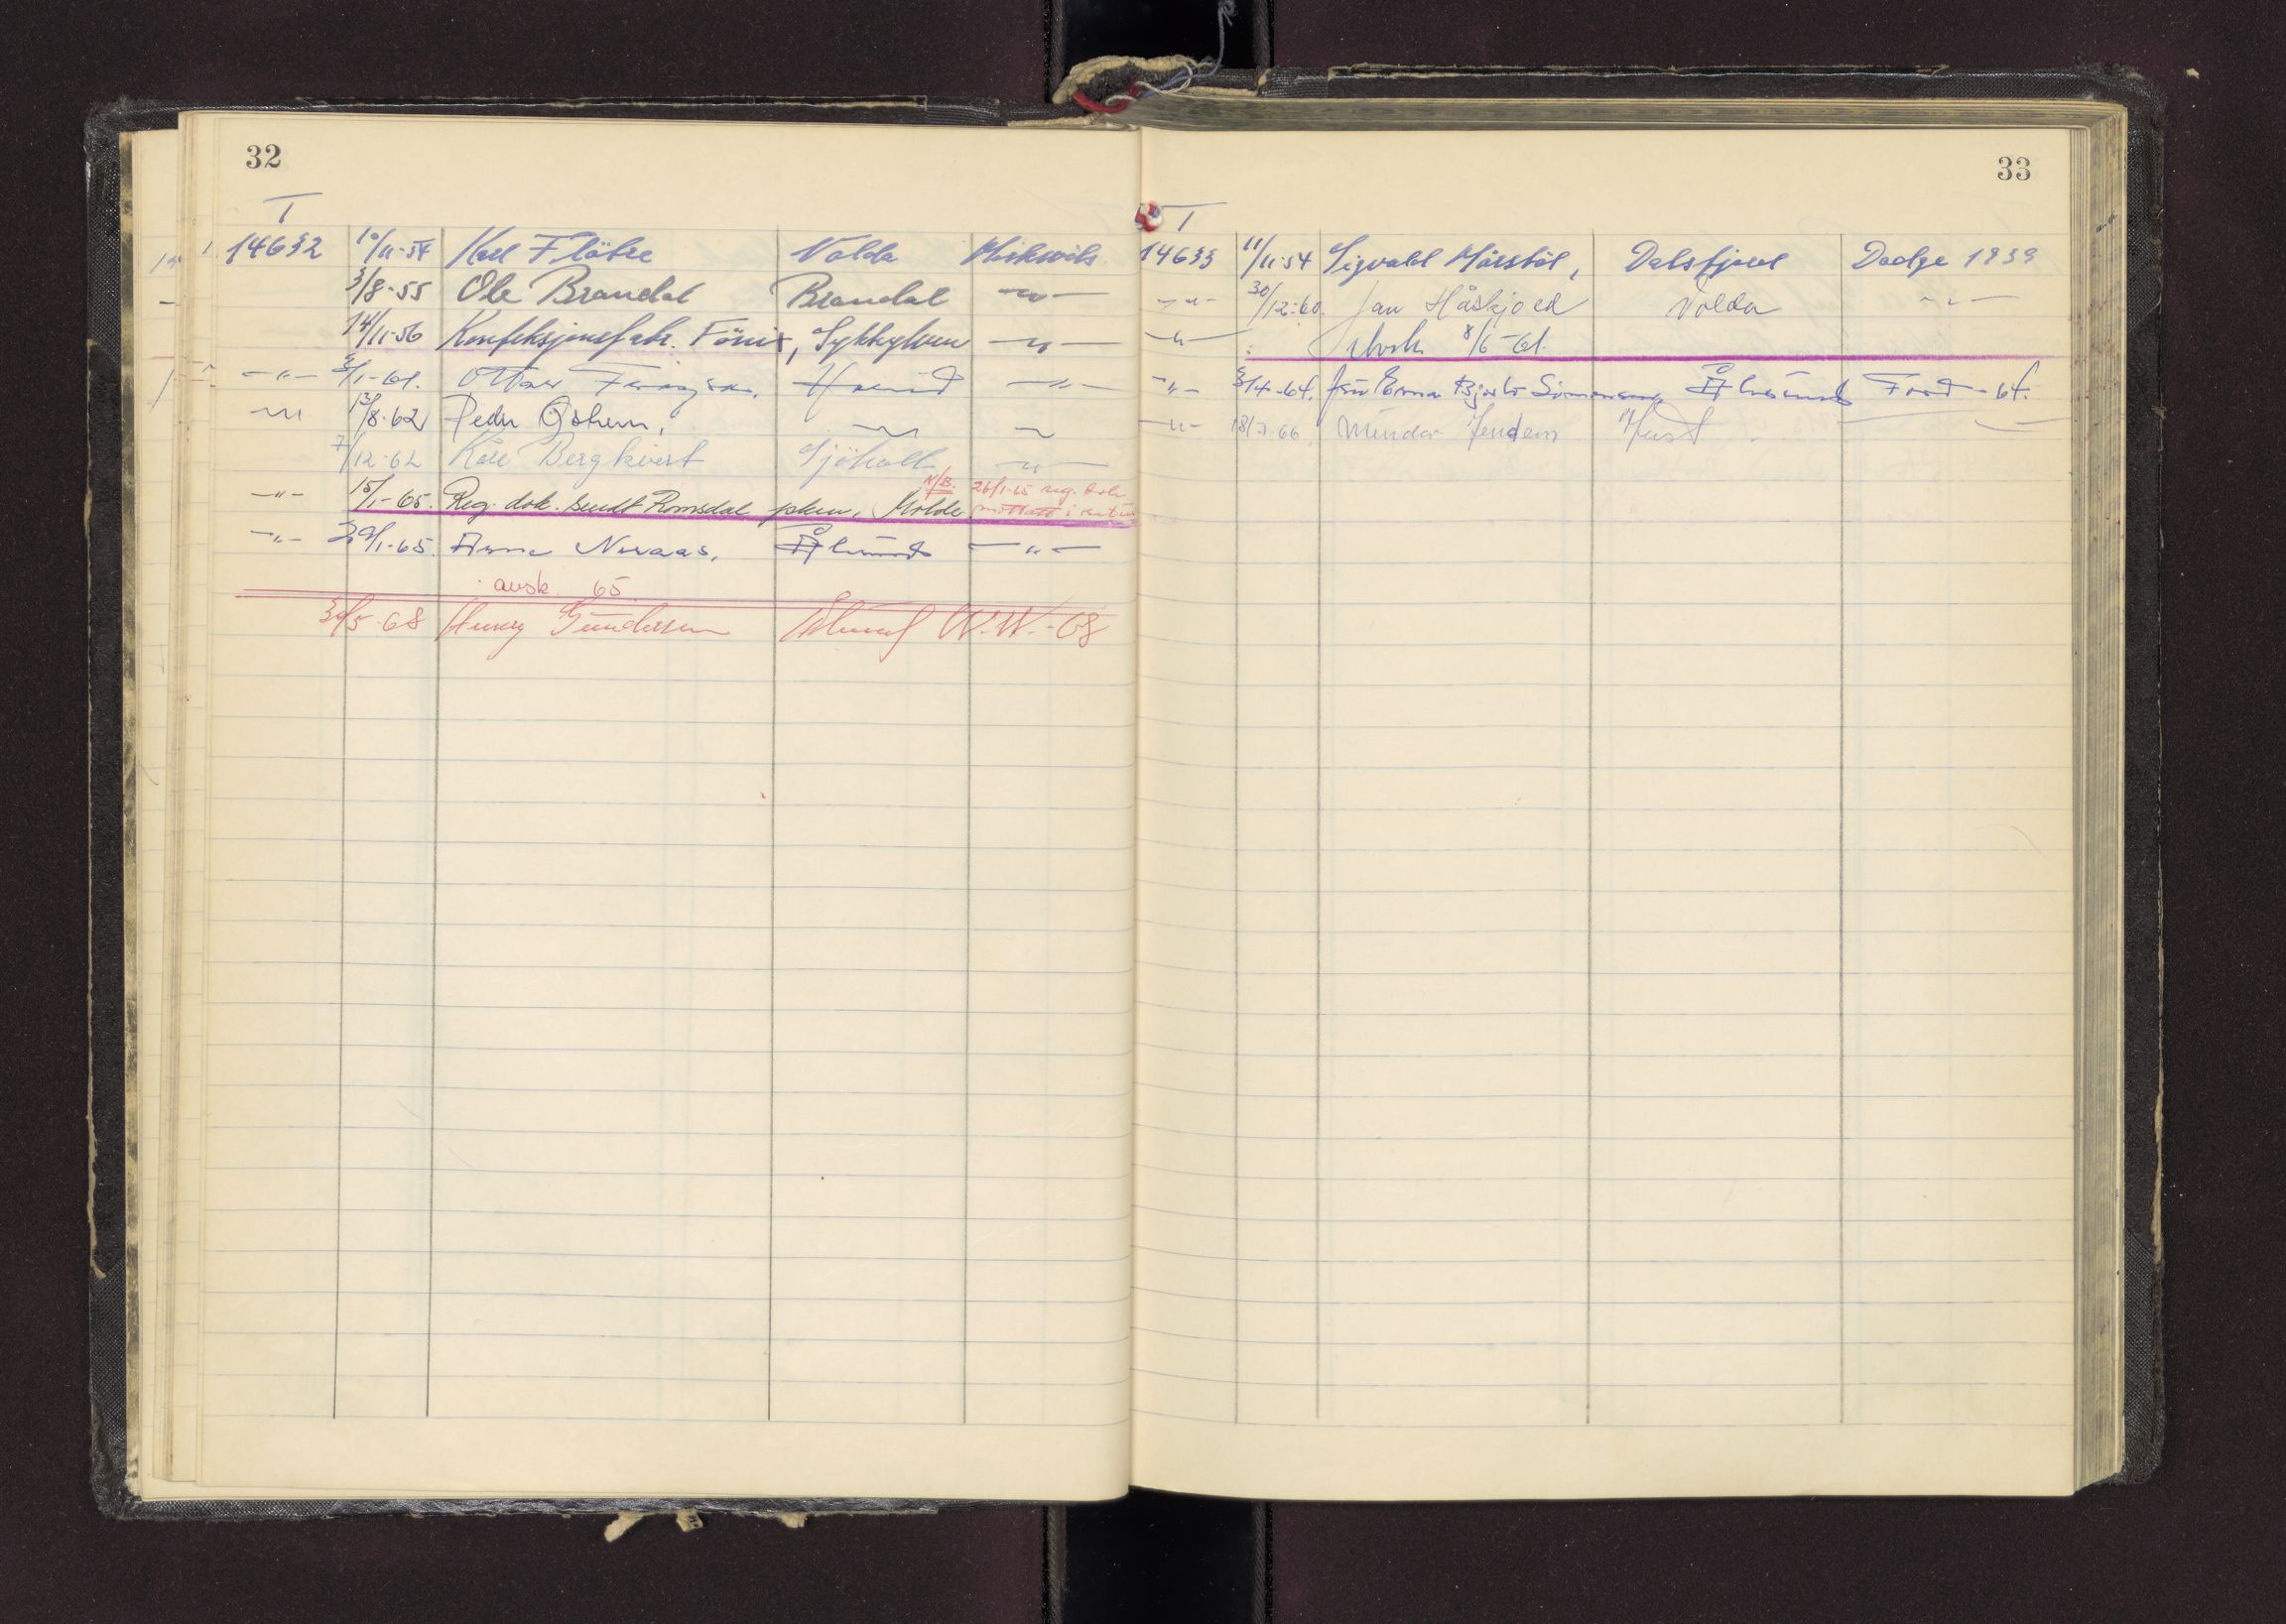 32
T
14632 10/11-54 Karl Flåtze Volda
3/8-55 Ole Brandal Brandal -"-
14/11-56 Konfeksjonsfabr. Fönix, Sykkylven -"-
-"- 3/1-61. Ottar -"-
-"- 13/8-62 Peder -"- -"-
7/12-62 Kåre Bergkvist Sjöholt -"-
-"- 15/1-65. Reg. dok. sendt Romsdal pkm. Molde N/B. 26/1-65 reg. dok
mottatt i retur
-"- 29/1-65. Arne Neraas, Ålesund -"-
avsk. 65
30/5-68 Henry Gundersen Ålesund V.W.-68
33
T
14633 11/11-54 Sigvald Mårstöl, Dalsfjord Dodge 1939
-"- 30/12-60. Jan Håskjold Volda -"-
-"- Avsk. 8/6-61.
-"- 3/4-64. fru Erna Simonsen, Ålesund Ford -64.
-"- 18/3-66 Jendem